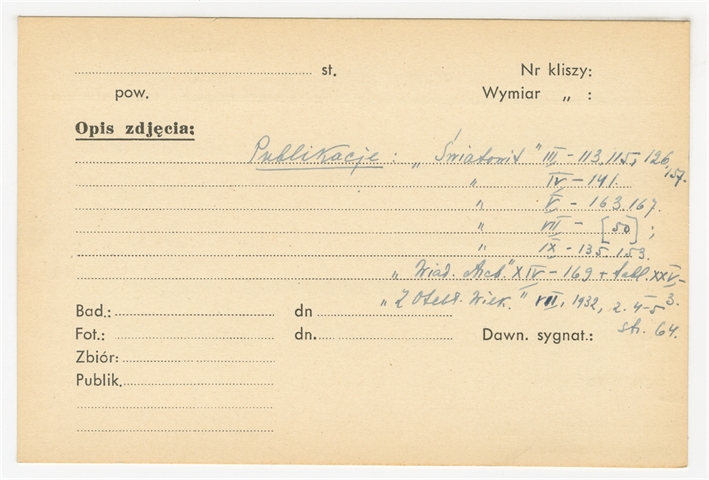 st. Nr kliszy:
pow. Wymiar „ :
Opis zdjęcia:
Publikacje : „Światowit" III – 113, 115, 126, 157.
„ IV – 141.
„ V – 163. 167.
„ VII – [50] ;
„ IX – 135. 153.
„Wiad. Arch." XIV – 169 + tabl. XXV – 3.
„Z Otchł. Wiek." VII, 1932, z. 4–5
str. 64.
Bad.: dn
Fot.: dn. Dawn. sygnat.:
Zbiór:
Publik.